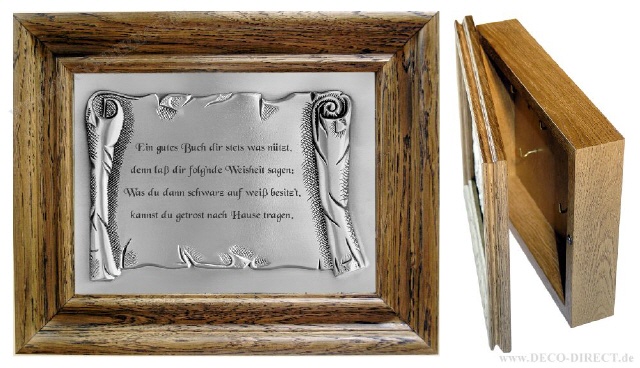 Ein gutes Buch dir stets was nützt,
denn laß dir folg'nde Weisheit sagen:
Was du dann schwarz auf weiß besitz't,
kannst du getrost nach Hause tragen.
www.DECO-DIRECT.de